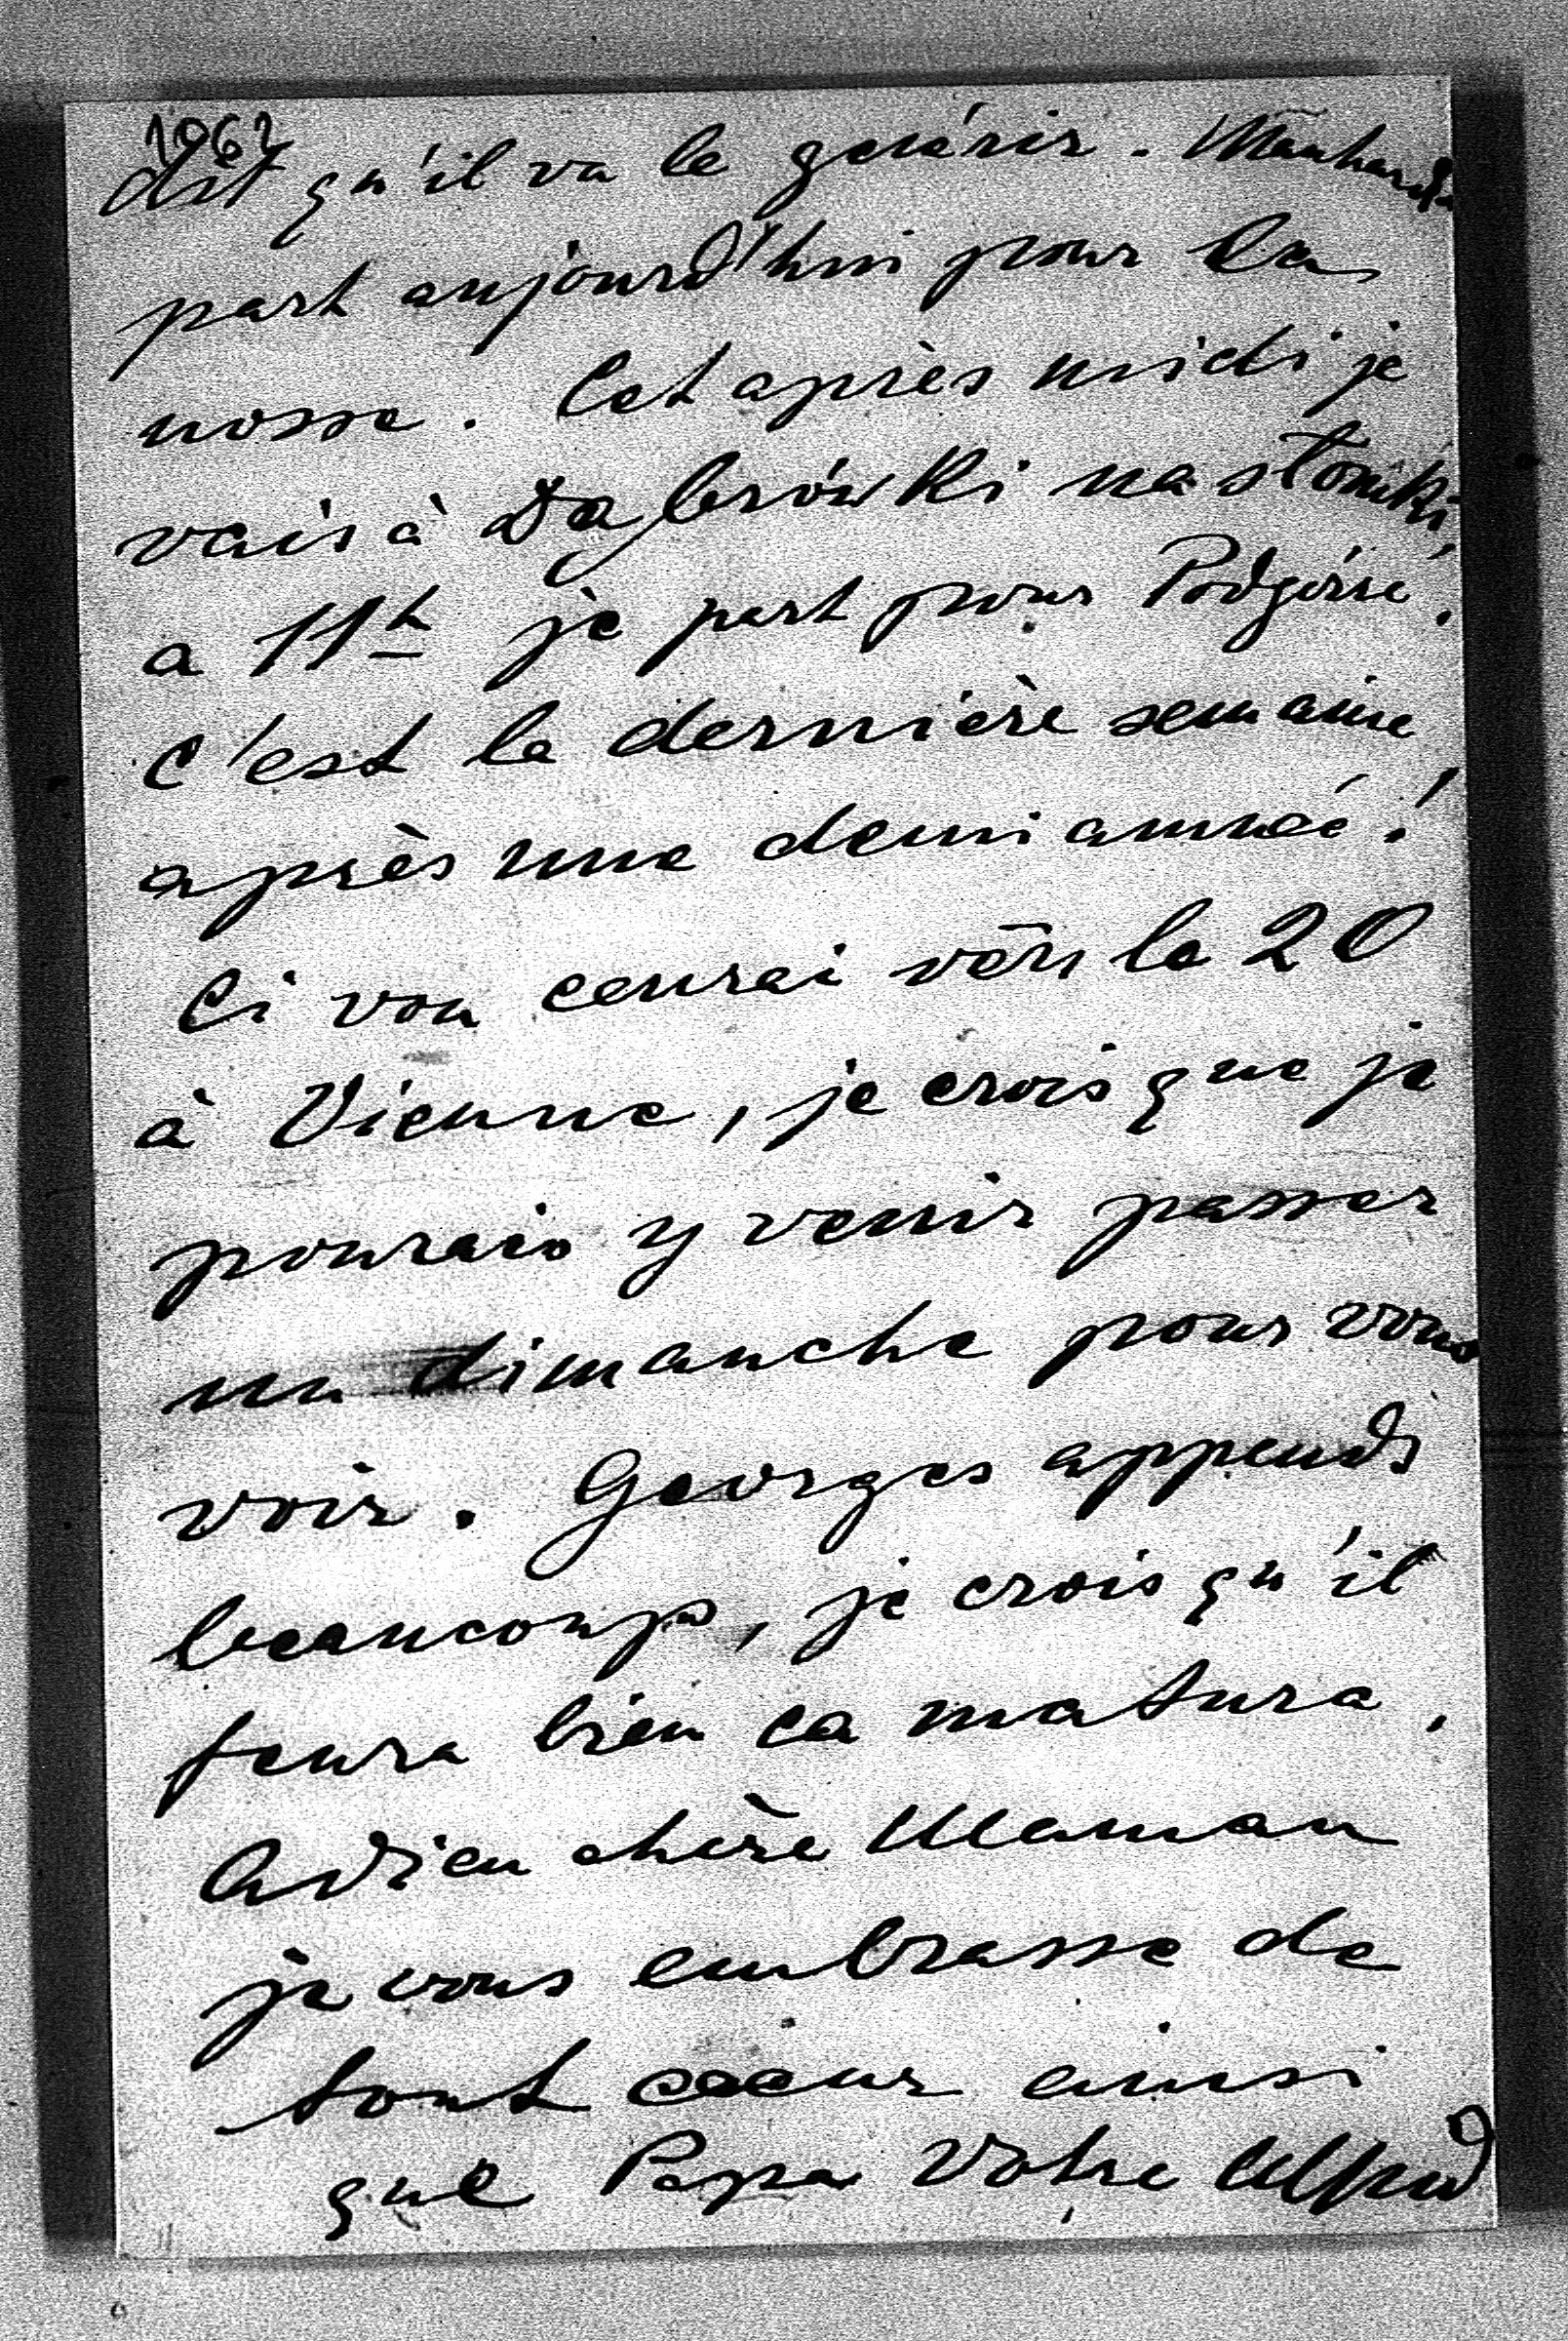 1062
dit qu'il va le guérir. Manhard
part aujourd'hui pour la
nosse. Cet après midi je
vais à Dąbrówki na słonki,
a 11h je part pour Podgórse.
C'est la dernière semaine
après une demi anneé!
Ci vou cerrai vers le 20
à Vienne, je crois que je
pourais y venir passer
un dimanche pour vous
voir. Georges appends
beaucoup, je crois qu'il
fera bien ca matura.
Adieu chère Maman
je vous embrasse de
tout coeur ainsi
que Papa Votre Alfred